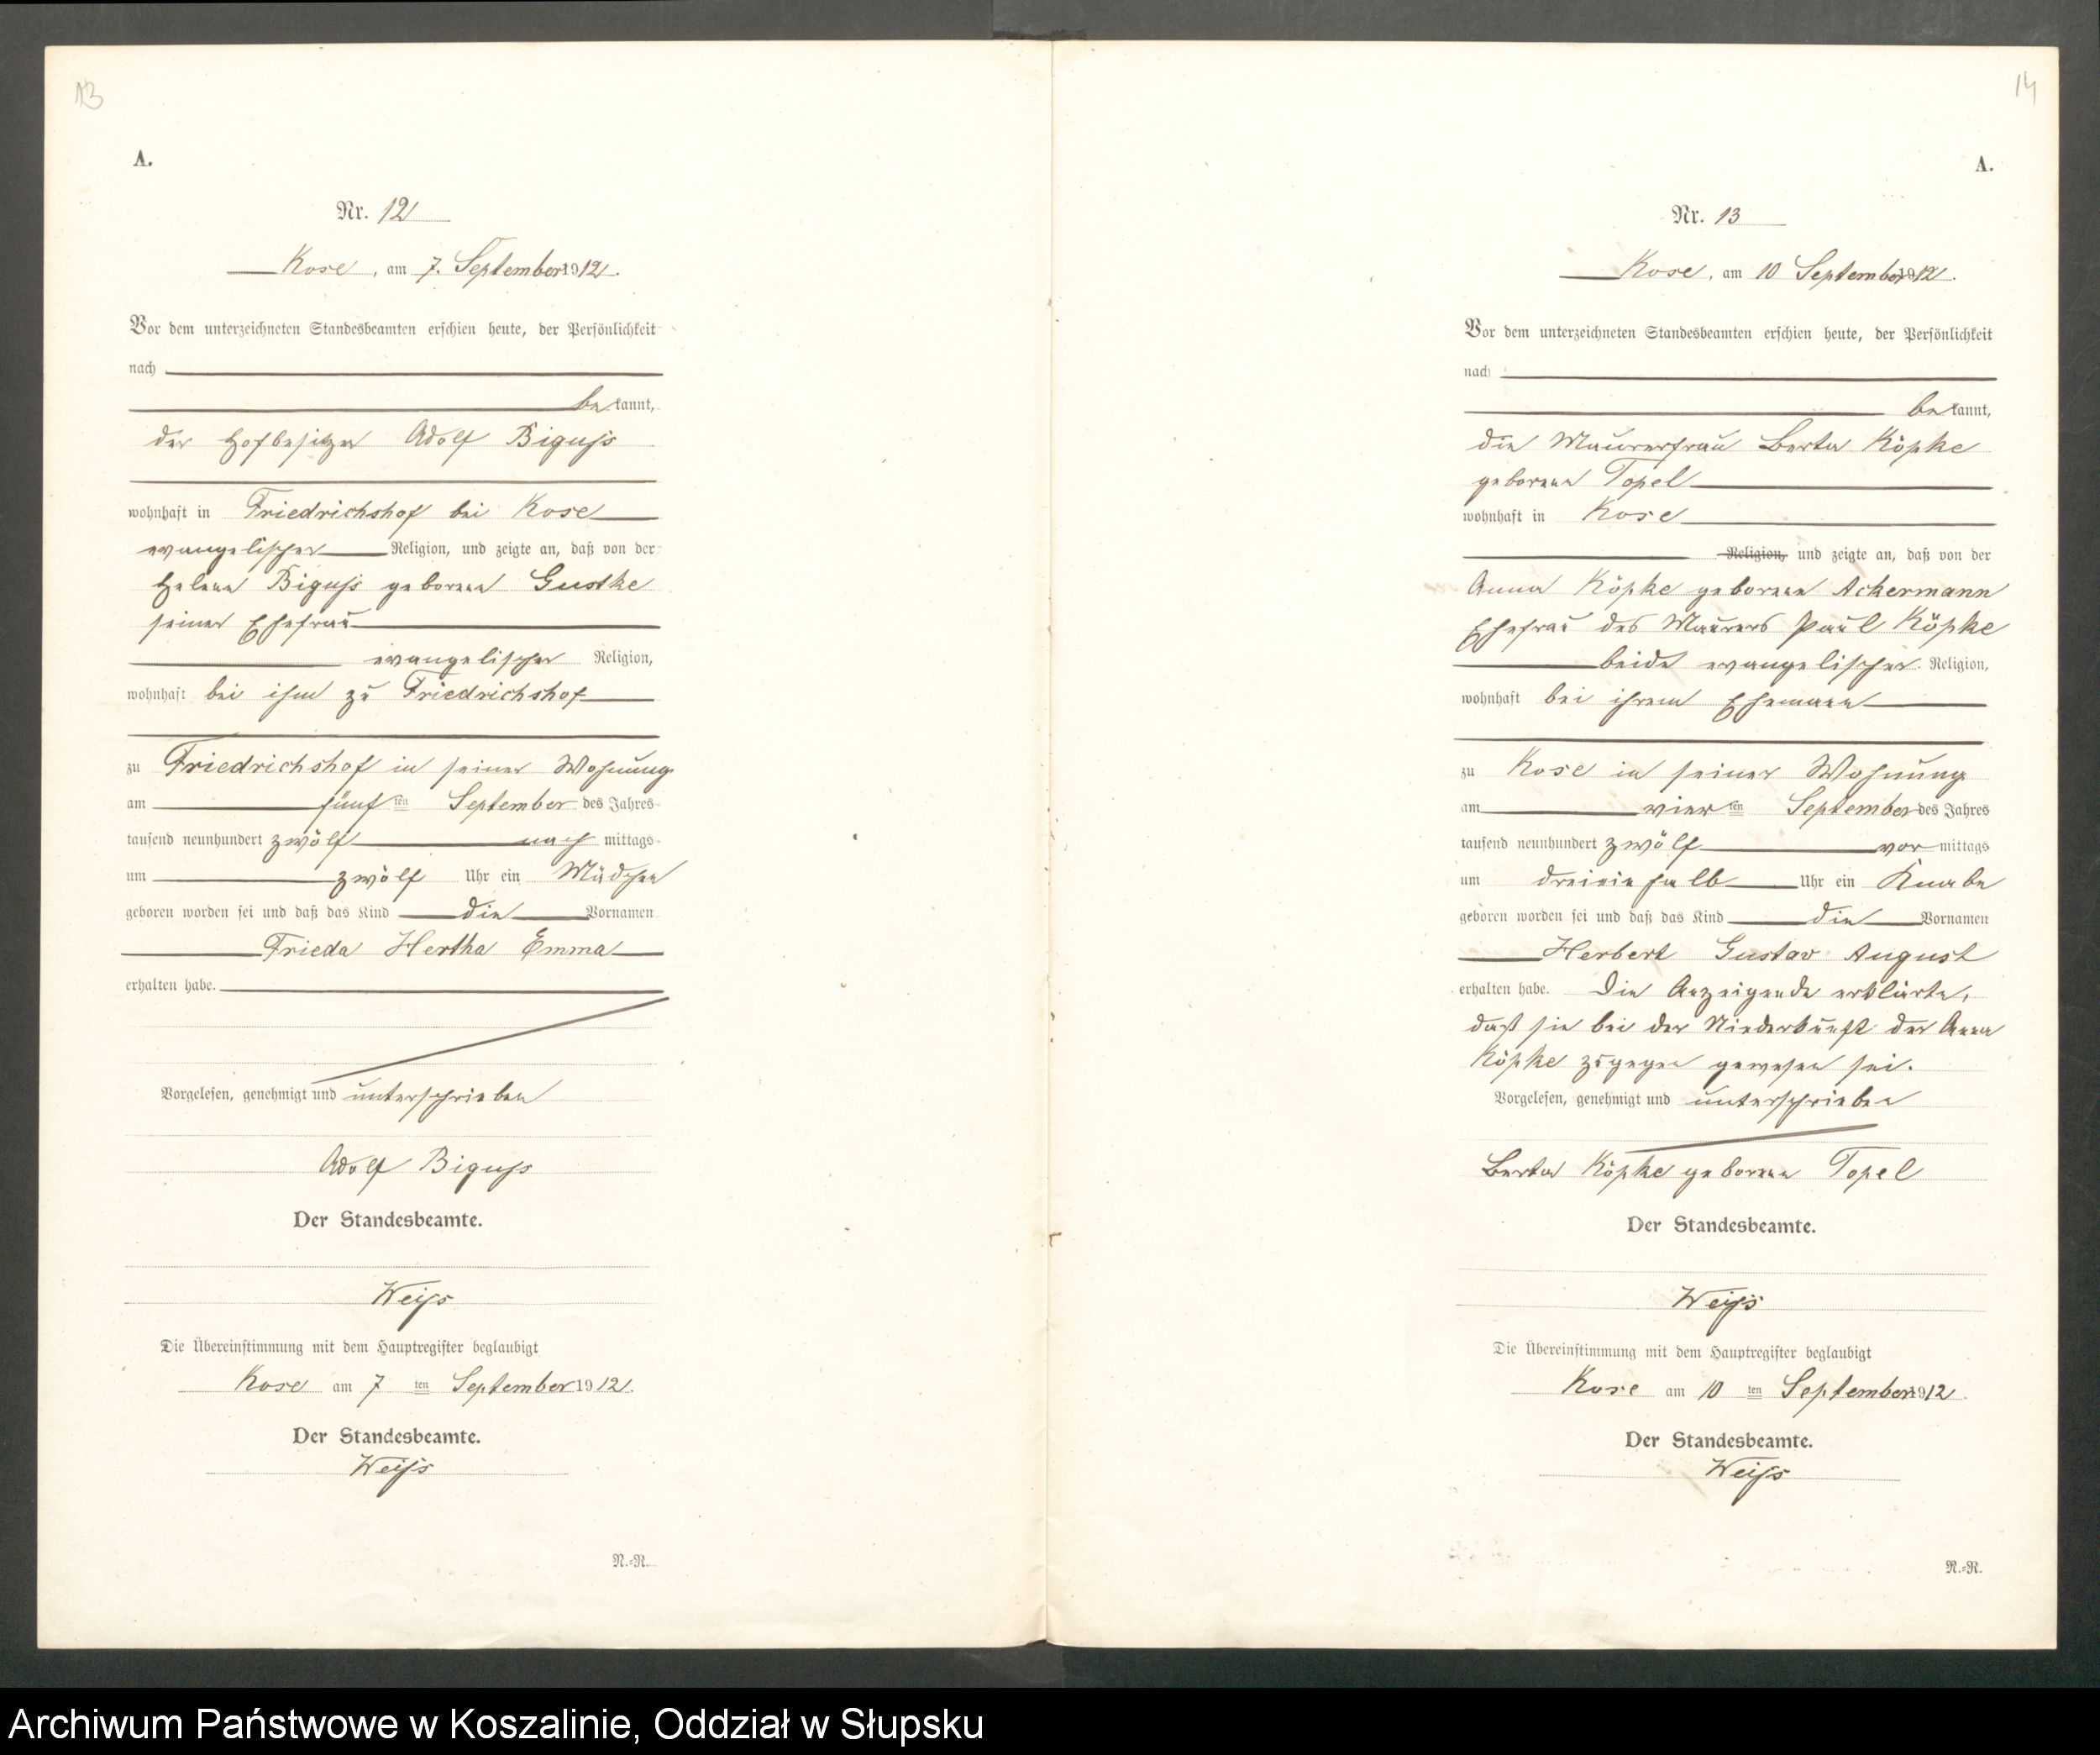 13
A.
Nr. 12
Kose, am 7. September 1912.
Vor dem unterzeichneten Standesbeamten erschien heute, der Persönlichkeit
nach
bekannt,
der Hofbesitzer Adolf Biguß
wohnhaft in Friedrichshof bei Kose
evangelischer Religion, und zeigte an, daß von der
Helene Biguß geborene Gustke
seiner Ehefrau
evangelischer Religion,
wohnhaft bei ihm zu Friedrichshof
zu Friedrichshof in seiner Wohnung
am fünften September des Jahres
tausend neunhundert zwölf nachmittags
um zwölf Uhr ein Mädchen
geboren worden sei und daß das Kind die Vornamen
Frieda Hertha Emma
erhalten habe.
Vorgelesen, genehmigt und unterschrieben
Adolf Biguß
Der Standesbeamte.
Weiß
Die Übereinstimmung mit dem Hauptregister beglaubigt
Kose am 7ten September 1912.
Der Standesbeamte.
Weiß
N.=R.
14
A.
Nr. 13
Kose, am 10 September 1912.
Vor dem unterzeichneten Standesbeamten erschien heute, der Persönlichkeit
nach
bekannt,
die Maurerfrau Berta Köpke
geborene Topel
wohnhaft in Kose
Religion, und zeigte an, daß von der
Anna Köpke geborene Ackermann
Ehefrau des Maurers Paul Köpke
beide evangelischer Religion,
wohnhaft bei ihrem Ehemann
zu Kose in seiner Wohnung
am vierten September des Jahres
tausend neunhundert zwölf vormittags
um dreieinhalb Uhr ein Knabe
geboren worden sei und daß das Kind die Vornamen
Herbert Gustav August
erhalten habe. Die Anzeigende erklärte,
daß sie bei der Niederkunft der Anna
Köpke zugegen gewesen sei.
Vorgelesen, genehmigt und unterschrieben
Berta Köpke geborene Topel
Der Standesbeamte.
Weiß
Die Übereinstimmung mit dem Hauptregister beglaubigt
Kose am 10ten September 1912.
Der Standesbeamte.
Weiß
N.=R.
Archiwum Państwowe w Koszalinie, Oddział w Słupsku